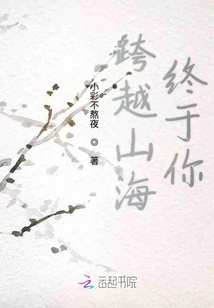 跨越山海
终于你
小彩不熬夜
◎
著
云起书院